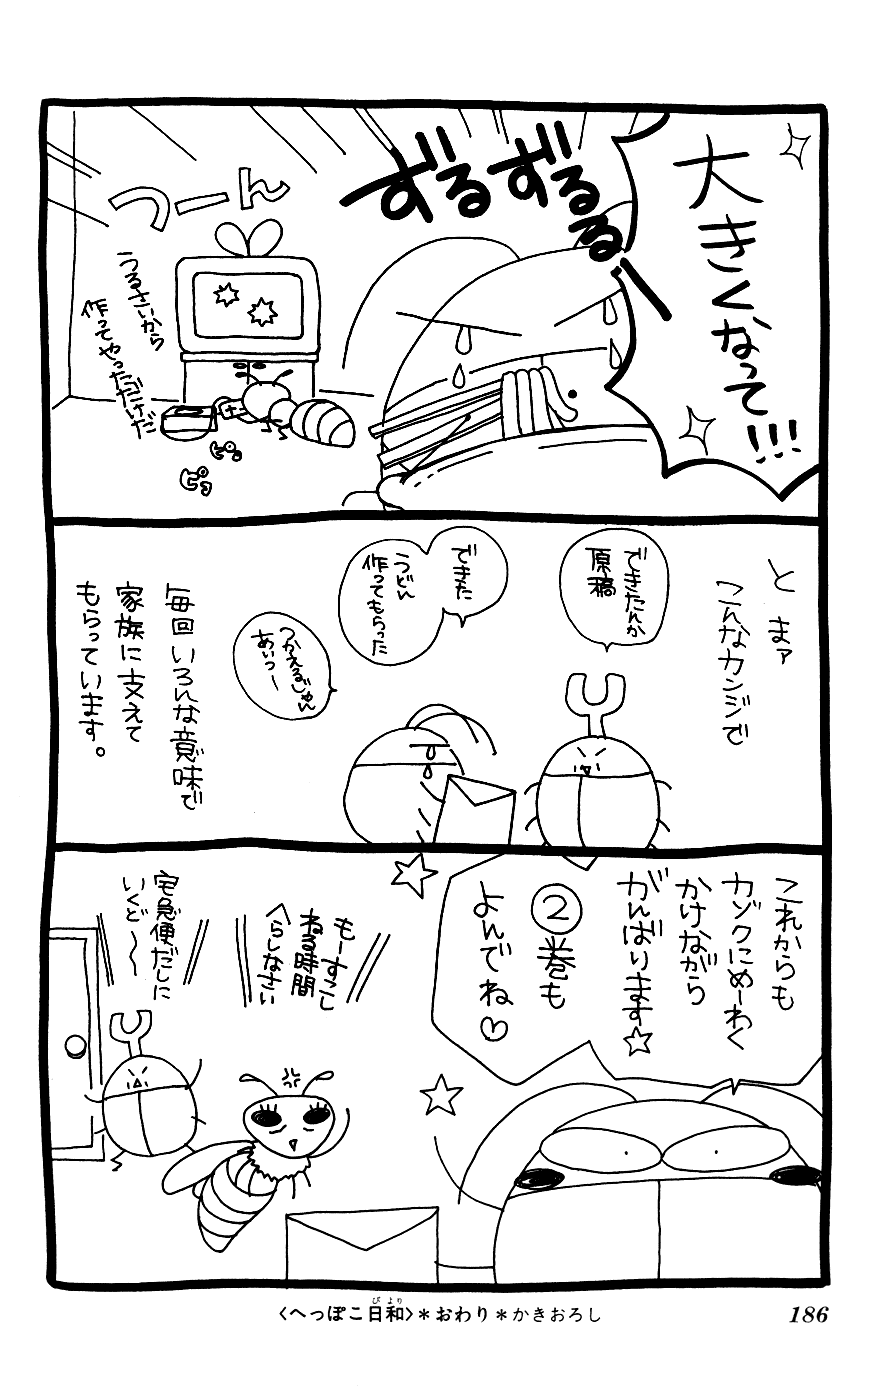 大きくなって!!!
ずるずるるー
つーん
うるさいから
作ってやっただけだ
ピコ
ピコ
と まァ
こんなカンジで
できたんか
原稿
できた
うどん
作ってもらった
つかえるじゃん
あいつー
毎回いろんな意味で
家族に支えて
もらっています。
これからも
カゾクにめーわく
かけながら
がんばります☆
②巻も
よんでね♡
もーすこし
ねる時間
へらしなさい
宅急便だしに
いくど〜〜
〈へっぽこ日和〉＊おわり＊かきおろし
びより
186